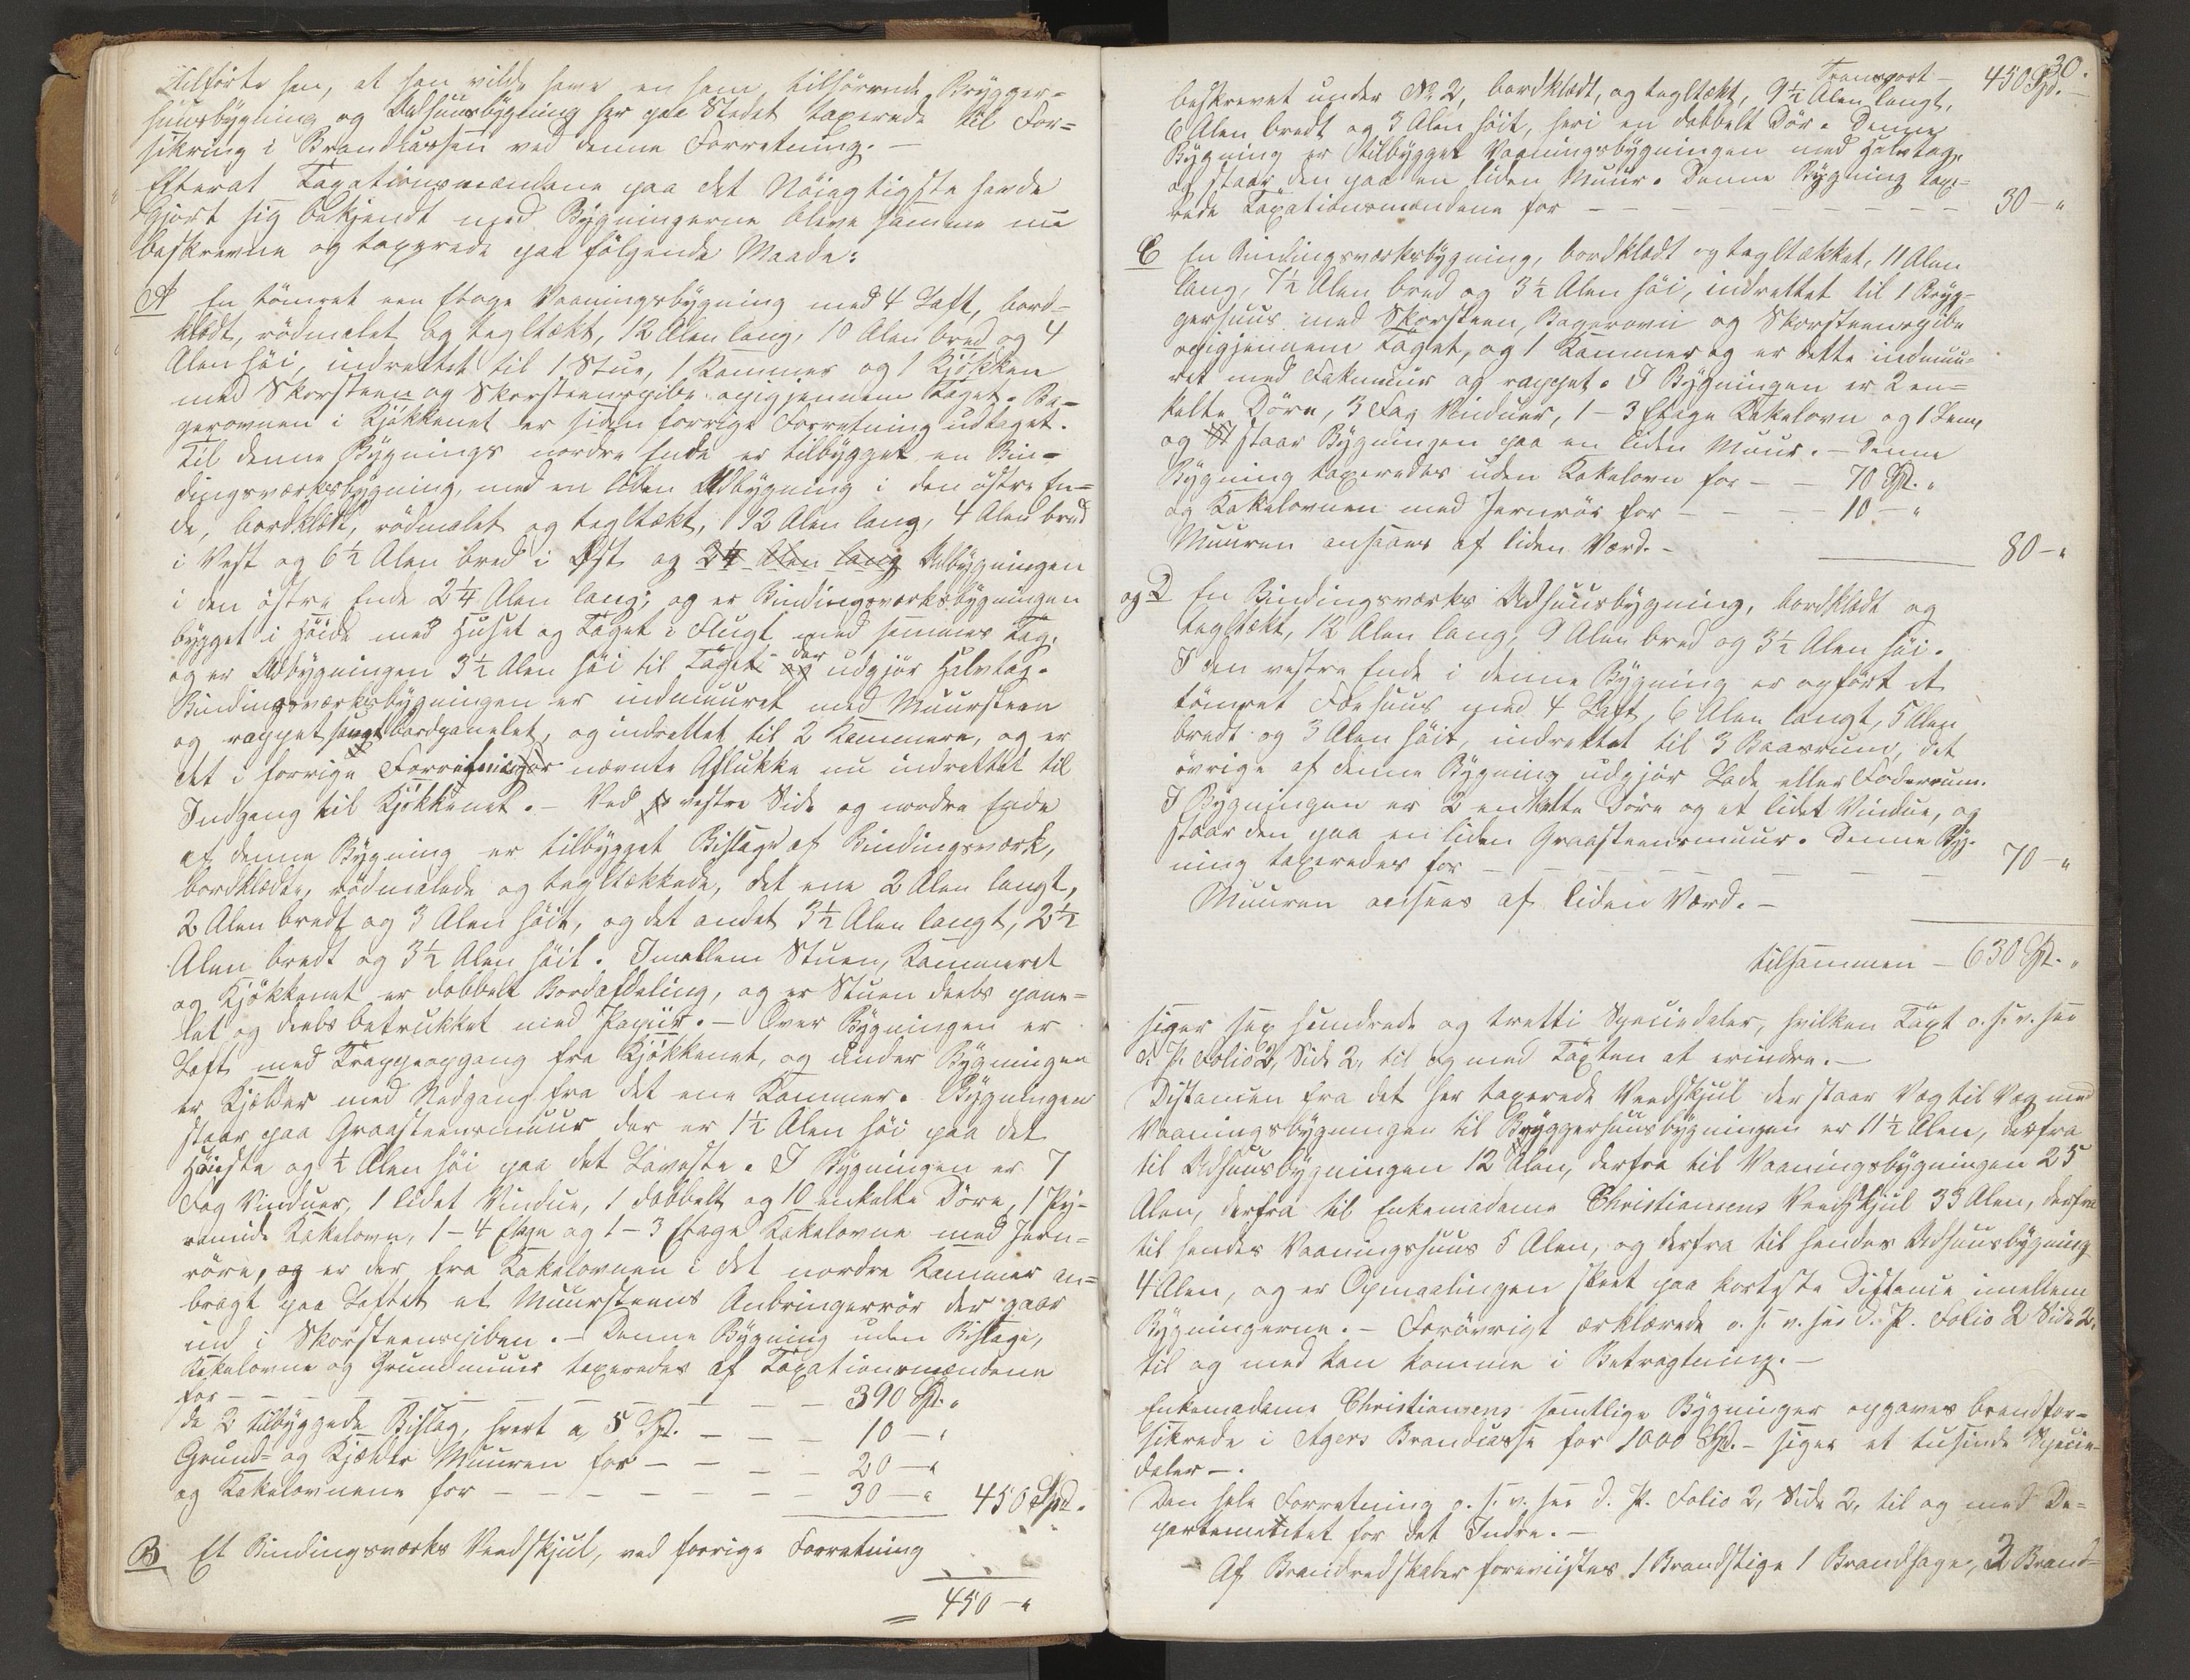 tilførte han, at han vilde have en ham tilhørende Brygger-
huusbygning og Udhuusbygning her paa Stedet taxerede til For=
sikring i Brandkassen ved denne Forretning. —
Efterat Taxationsmændene paa det Nöiagtigste havde
gjort sig bekjendt med Bygningerne bleve samme nu
beskrevne og taxerede paa følgende Maade:
A En tömret een Etage Vaaningsbygning med 4 Laft, bord-
klædt, rödmalet og tegltækt, 12 Alen lang, 10 Alen bred og 4
Alen höi, indrettet til 1 Stue, 1 Kammer og 1 Kjökken
med Skorsteen og Skorsteenspibe opigjennem Taget. Ba-
gerovnen i Kjökkenet er siden forrige Forretning udtaget.
Til denne Bygnings nordre Ende er tilbygget en Bin-
dingsværksbygning, med en liden Udbygning i den östre En=
de, bordklædt, rödmalet og tegltækt, 12 Alen lang, 4 Alen bred
i Vest og 6½ Alen bred i Øst og 2¼ Alen lang Udbygningen
i den östre Ende 2¼ Alen lang; og er Bindingsværksbygningen
bygget i Höide med Huset og Taget i Flugt med sammes Tag,
og er Udbygningen 3½ Alen höi til Taget der udgjör Halvtag.
Bindingsværksbygningen er indmuuret med Muursteen
og rappet samt bordpanelet, og indrettet til 2 Kammere, og er
det i forrige Forretninger nævnte Aflukke nu indrettet til
Indgang til Kjökkenet. — Ved vestre Side og nordre Ende
af denne Bygning er tilbygget Bislage af Bindingsværk,
bordklædte, rödmalede og tegltækkede, det ene 2 Alen langt,
2 Alen bredt og 3 Alen höit, og det andet 3½ Alen langt, 2½
Alen bredt og 3½ Alen höit. Imellem Stuen, Kammeret
og Kjökkenet er dobbelt Bordafdeling, og er Stuen deels pane=
let og deels betrukket med Papiir. — Over Bygningen er
Loft med Trappeopgang fra Kjökkenet, og under Bygningen
er Kjælder med Nedgang fra det ene Kammer. Bygningen
staar paa Graasteensmuur der er 1½ Alen höi paa det
Höieste og ½ Alen höi paa det Laveste. I Bygningen er 7
Fag Vinduer, 1 lidet Vindue, 1 dobbelt og 10 enkelte Döre, 1 Py-
ramide Kakelovn, 1 – 4 Etage og 1 – 3 Etage Kakelovne med Jern=
röre, og er der fra Kakelovnen i det nordre Kammer an=
bragt paa Loftet et Muursteens Anbringerrör der gaar
ind i Skorsteenspiben. — Denne Bygning uden Bislage,
Kakelovne og Grundmuur taxeredes af Taxationsmændene
for — — — — — — — 390 Spd. "
de 2 tilbyggede Bislag, hvert a 5 Spd. — — — 10 — "
Grund= og Kjælder Muuren for — — — — 20 — "
og Kakelovnene for — — — — — — 30 — " 450 Spd.
B Et Bindingsværks Veedskjul, ved forrige Forretning
450 — "
30.
Transport — 450 Spd.
beskrevet under No 2, bordklædt, og tegltækt, 9½ Alen langt,
6 Alen bredt og 3 Alen höit, heri en dobbelt Dör. Denne
Bygning er tilbygget Vaaningsbygningen med Halvtag,
og staar den paa en liden Muur. Denne Bygning taxe-
rede Taxationsmændene for — — — — — 30 — "
C En Bindingsværksbygning, bordklædt og tegltækket, 11 Alen
lang, 7½ Alen bred og 3½ Alen höi, indrettet til 1 Bryg-
gerhuus med Skorsteen, Bagerovn og Skorsteenspibe
opigjennem Taget, og 1 Kammer og er dette indmuu-
ret med Fakmuur og rappet. I Bygningen er 2 en=
kelte Döre, 3 Fag Vinduer, 1 – 3 Etage Kakelovn og 1 Lem,
og staar Bygningen paa en liden Muur. — Denne
Bygning taxeredes uden Kakelovn for — — 70 Spd. "
og Kakelovnen med Jernrör for — — — 10 — "
Muuren ansaaes af liden Værd. — 80 — "
og D En Bindingsværks Udhuusbygning, bordklædt og
tegltækt, 12 Alen lang, 9 Alen bred og 3½ Alen höi.
I den vestre Ende i denne Bygning er opført et
tömret Fæhuus med 4 Laft, 6 Alen langt, 5 Alen
bredt og 3 Alen höit, indrettet til 3 Baasrum, det
övrige af denne Bygning udgjör Lade eller Foderrum.
I Bygningen er 2 enkelte Döre og et lidet Vindue, og
staar den paa en liden Graasteensmuur. Denne Byg-
ning taxeredes for — — — — — — 70 — "
Muuren ansees af liden Værd. —
tilsammen — 630 Spd. "
siger sex hundrede og tretti Speciedaler, hvilken Taxt o. s. v. see
d. P. Folio 2, Side 2, til og med Taxten at erindre. —
Distancen fra det her taxerede Veedskjul der staar Væg til Væg med
Vaaningsbygningen til Bryggerhuusbygningen er 11½ Alen, derfra
til Udhuusbygningen 12 Alen, derfra til Vaaningsbygningen 25
Alen, derfra til Enkemadame Christiansens Veedskjul 33 Alen, derfra
til hendes Vaaningshuus 5 Alen, og derfra til hendes Udhuusbygning
4 Alen, og er Opmaalingen skeet paa korteste Distance imellem
Bygningerne. — Forövrigt erklærede o. s. v. see d. P. Folio 2 Side 2,
til og med kan komme i Betragtning. —
Enkemadame Christiansens samtlige Bygninger opgaves brandfor=
sikrede i Agers Brandcasse for 1000 Spd. — siger et tusinde Specie-
daler —.
Den hele Forretning o. s. v. see d. P. Folio 2, Side 2, til og med De=
partementet for det Indre. —
Af Brandredskaber foreviistes 1 Brandstige 1 Brandhage, 2 Brand=